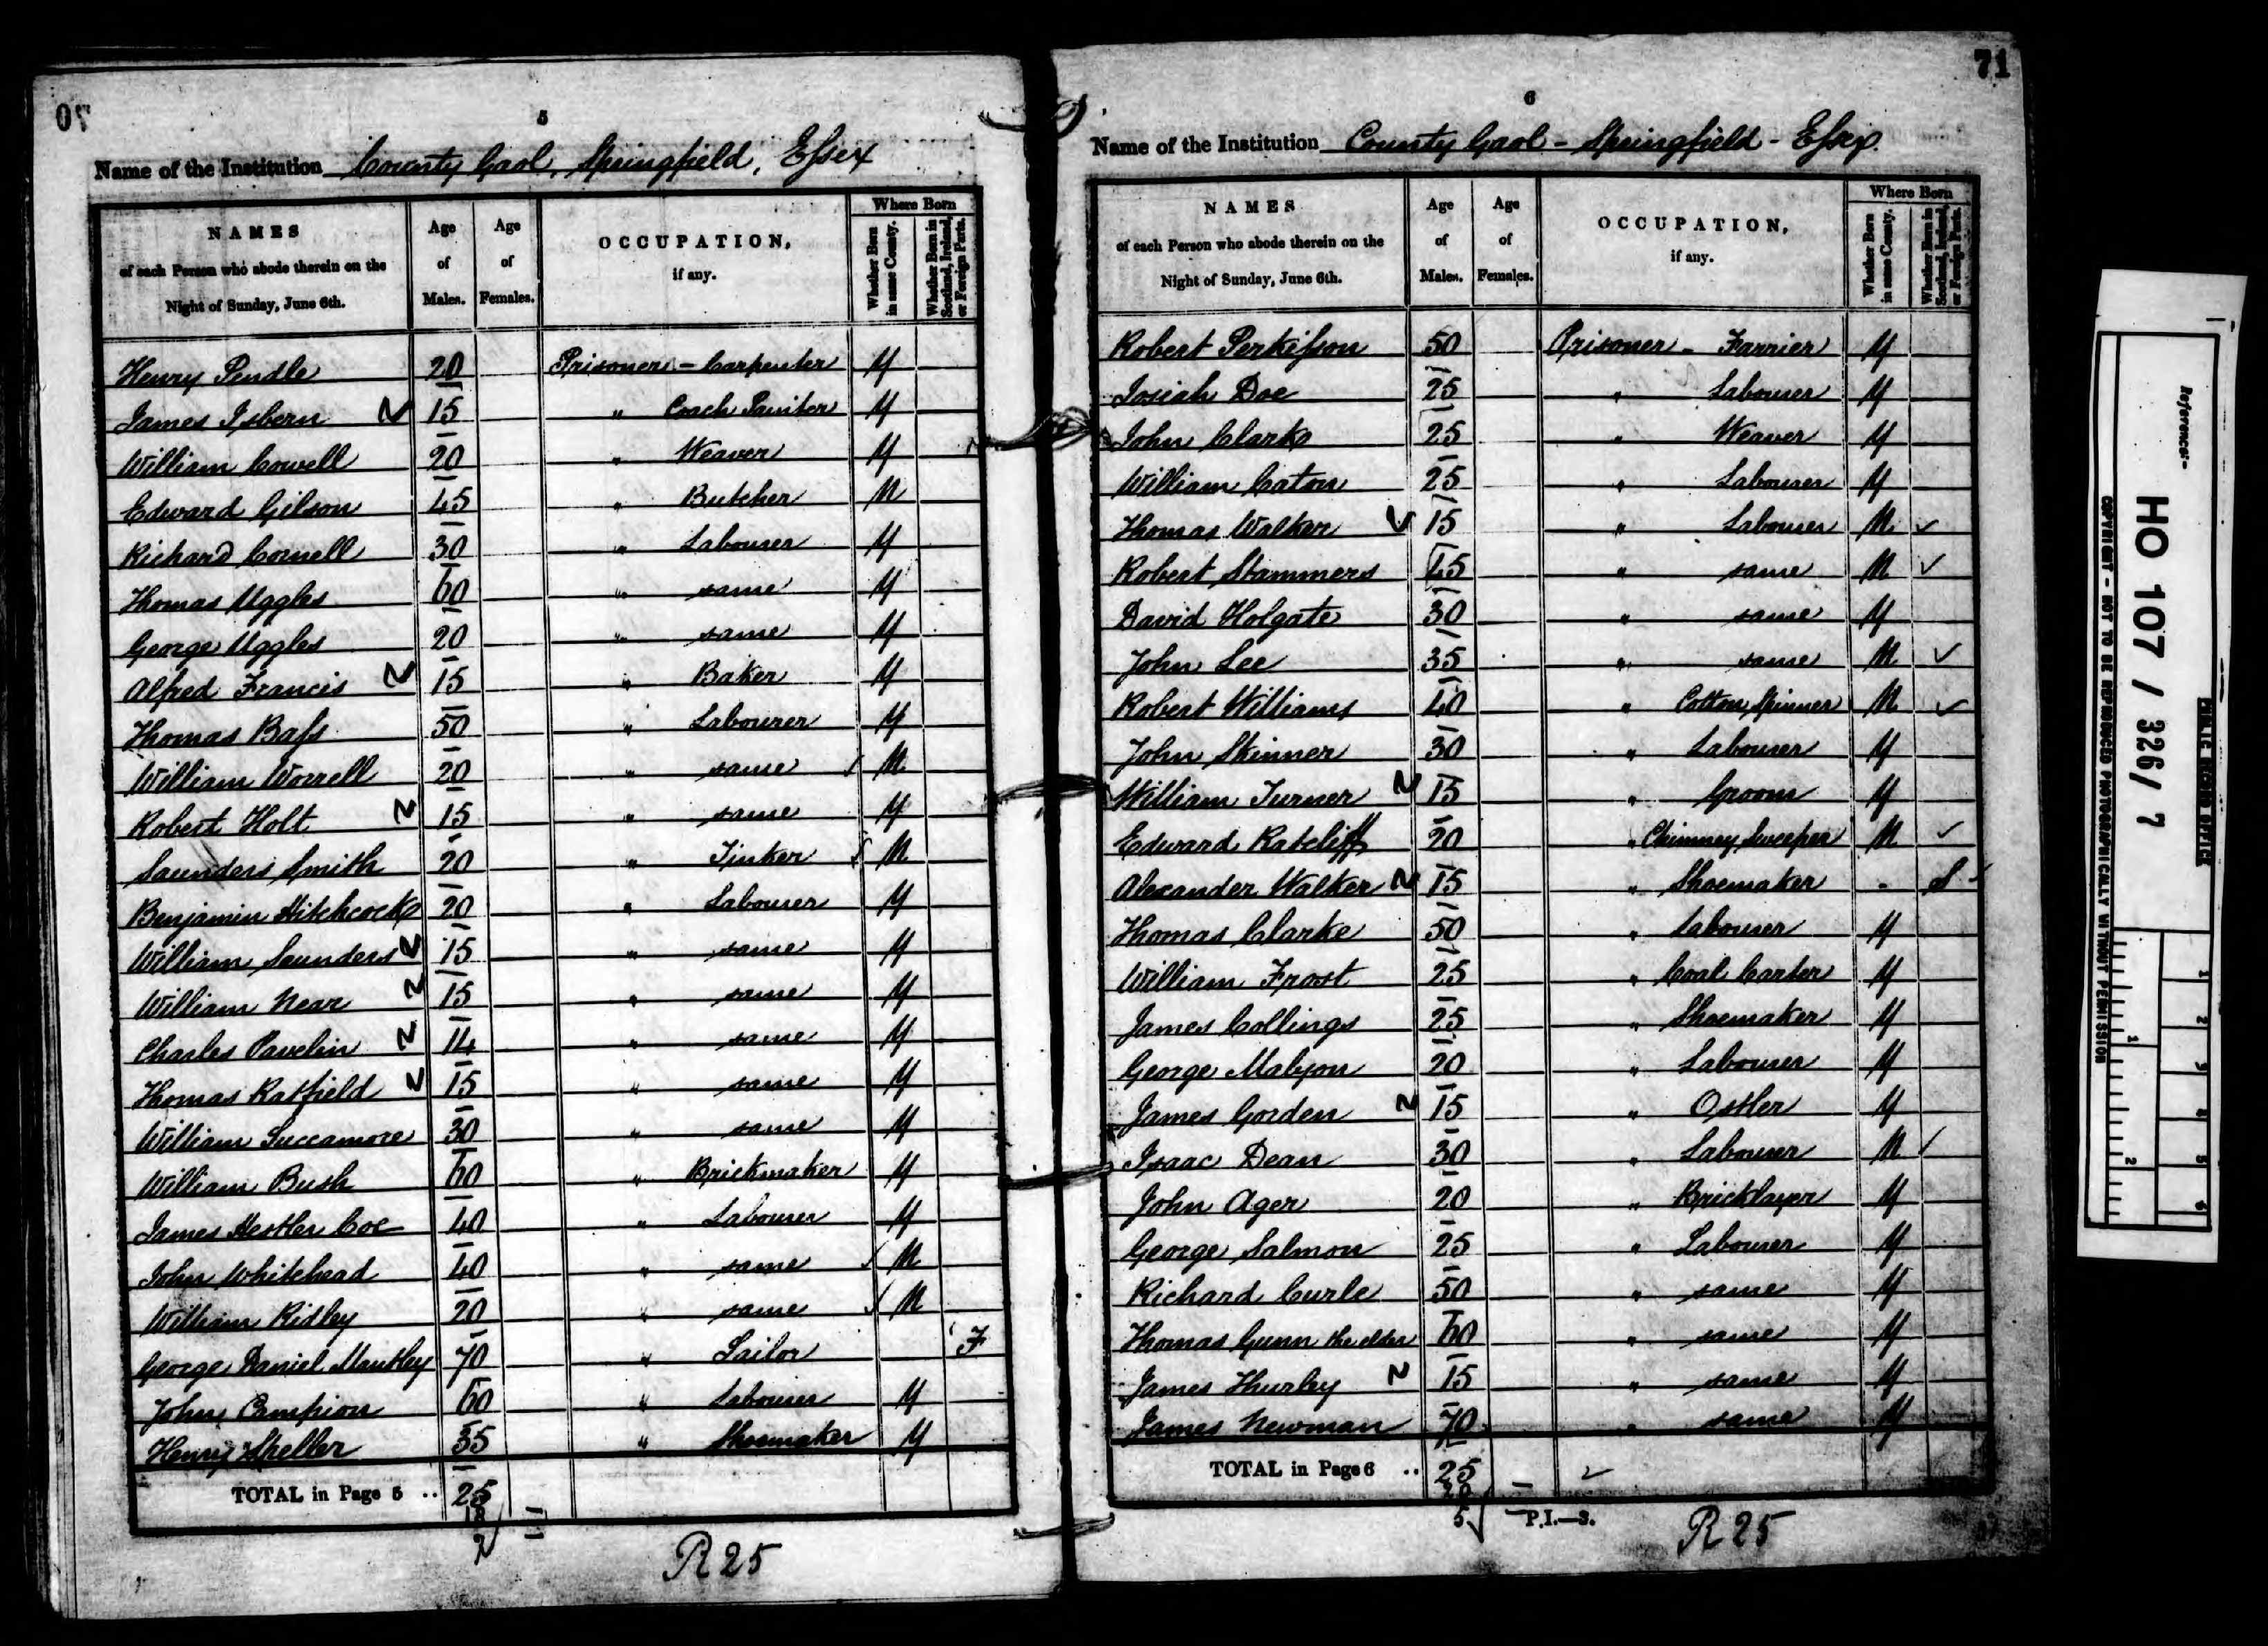 70
5
Name of the Institution County Gaol, Springfield, Essex
NAMES of each Person who abode therein on the Night of Sunday, June 6th.
Age of Males.
Age of Females.
OCCUPATION, if any.
Where Born
Whether Born in same County.
Whether Born in Scotland, Ireland, or Foreign Parts.
Henry Pendle 20 Prisoner - Carpenter Y
James Isbern 15 " Coach Painter Y
William Cowell 20 " Weaver Y
Edward Gilson 45 " Butcher N
Richard Cornell 30 " Labourer Y
Thomas Uggles 60 " same Y
George Uggles 20 " same Y
Alfred Francis 15 " Baker Y
Thomas Bass 50 " Labourer Y
William Worrell 20 " same N
Robert Holt 15 " same Y
Saunders Smith 20 " Tinker N
Benjamin Hitchcock 20 " Labourer Y
William Saunders 15 " same Y
William Near 15 " same Y
Charles Pavelin 14 " same Y
Thomas Ratfield 15 " same Y
William Succamore 30 " same Y
William Bush 60 " Brickmaker Y
James Hestler Coe 40 " Labourer Y
John Whitehead 40 " same N
William Ridley 20 " same N
George Daniel Mantley 70 " Sailor F
John Campion 60 " Labourer Y
Henry Speller 35 " Shoemaker Y
TOTAL in Page 5 .. 25
18
2
R 25
71
6
Name of the Institution County Gaol - Springfield - Essex
NAMES of each Person who abode therein on the Night of Sunday, June 6th.
Age of Males.
Age of Females.
OCCUPATION, if any.
Where Born
Whether Born in same County.
Whether Born in Scotland, Ireland, or Foreign Parts.
Robert Perkisson 50 Prisoner - Farrier Y
Josiah Doe 25 " Labourer Y
John Clark 25 " Weaver Y
William Caton 25 " Labourer Y
Thomas Walker 15 " Labourer N
Robert Stammers 45 " same N
David Holgate 30 " same Y
John Lee 35 " same N
Robert Williams 40 " Cotton Spinner N
John Skinner 30 " Labourer Y
William Turner 15 " Groom Y
Edward Ratcliff 20 " Chimney Sweeper N
Alexander Walker 15 " Shoemaker - S
Thomas Clarke 50 " Labourer Y
William Frost 25 " Coal Carter Y
James Collings 25 " Shoemaker Y
George Malyon 20 " Labourer Y
James Gorden 15 " Ostler Y
Isaac Dean 30 " Labourer N
John Ager 20 " Bricklayer Y
George Salmon 25 " Labourer Y
Richard Curle 50 " same Y
Thomas Gunn the elder 60 " same Y
James Thurley 15 " same Y
James Newman 70 " same Y
TOTAL in Page 6 .. 25
20
5
P.I.—3.
R 25
Reference:-
HO 107 / 326 / 7
PUBLIC RECORD OFFICE
COPYRIGHT - NOT TO BE REPRODUCED PHOTOGRAPHICALLY WITHOUT PERMISSION